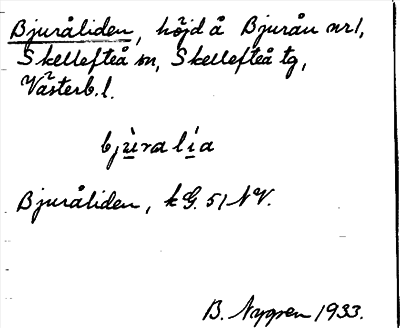 Bjuråliden, höjd å Bjurån nr 1,
Skellefteå sn, Skellefteå tg,
Västerb. l.
bjùralía
Bjuråliden, k G. 51 NV.
B. Nygren 1933.